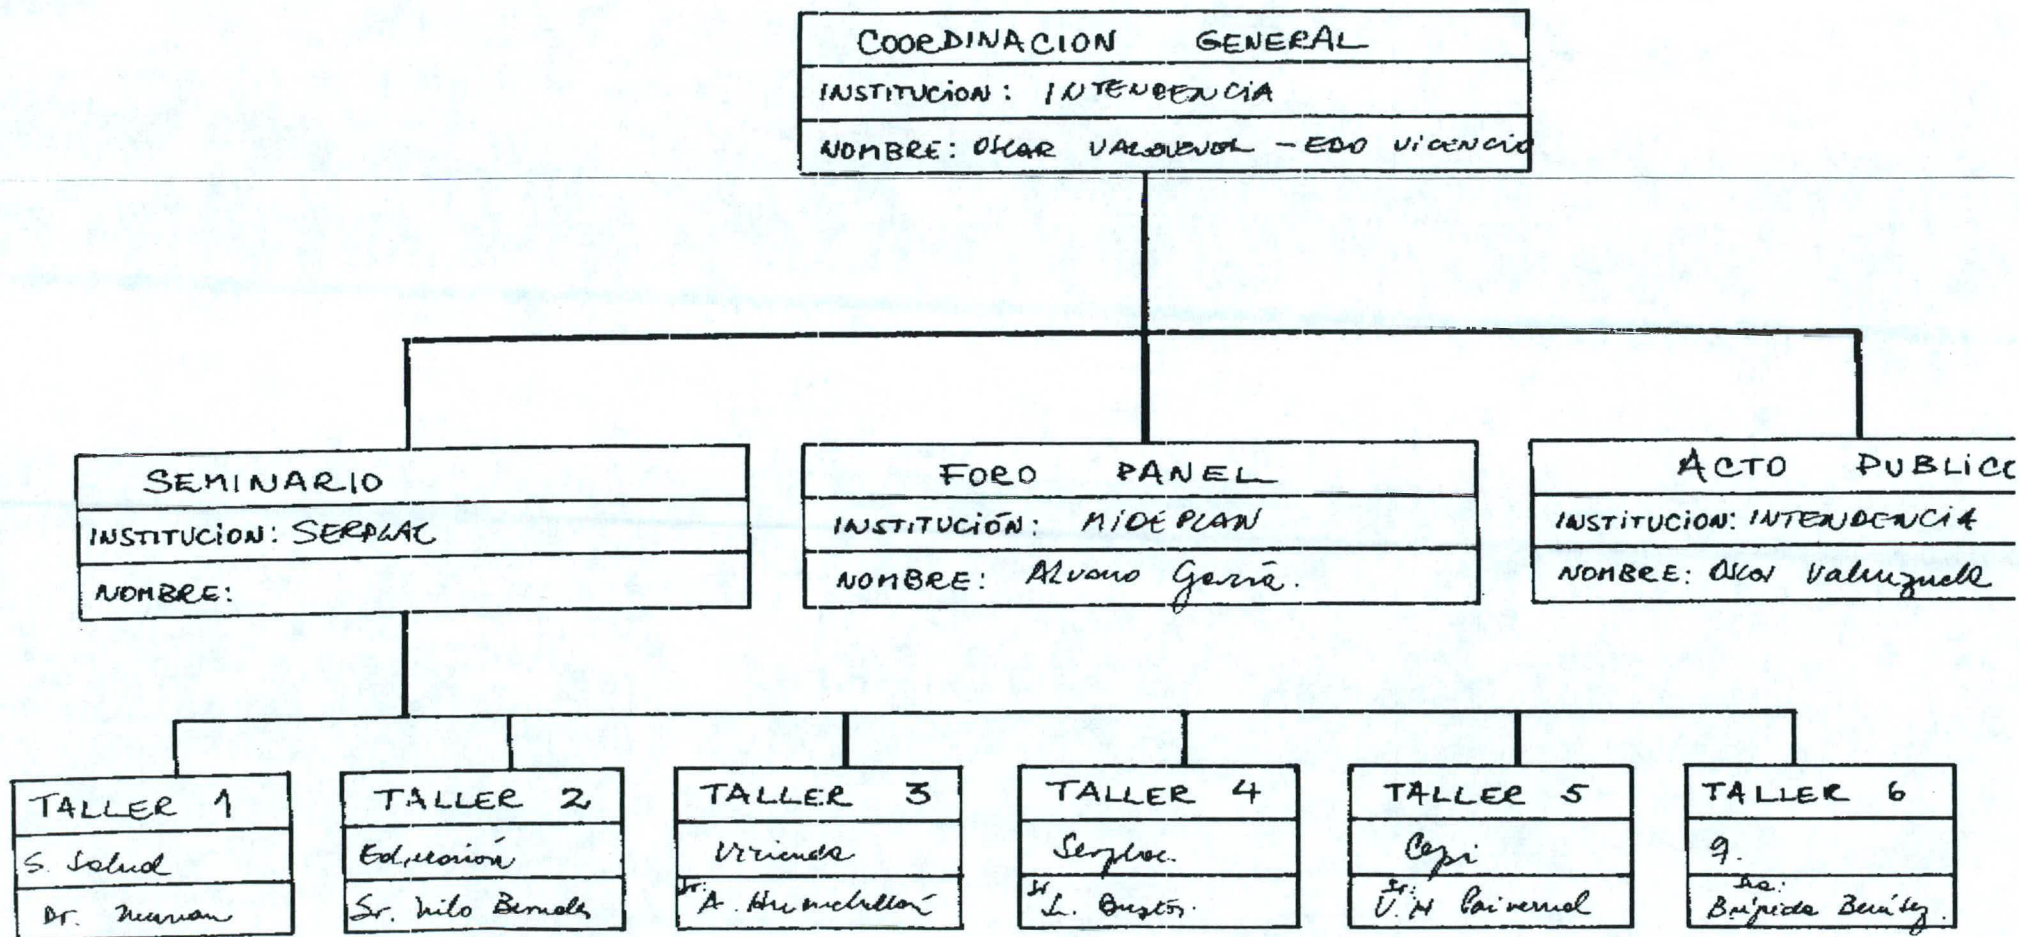 COORDINACION GENERAL
INSTITUCION: INTENDENCIA
NOMBRE: OSCAR - EDO VICENCIO
SEMINARIO
INSTITUCION: SERPLAC
NOMBRE:
FORO PANEL
INSTITUCIÓN: MIDEPLAN
NOMBRE: Alvaro García.
ACTO PUBLICO
INSTITUCION: INTENDENCIA
NOMBRE: Oscar Valenzuela
TALLER 1
S. Salud
Dr.
TALLER 2
Educación
Sr. Nilo
TALLER 3
Vivienda
Sr. A.
TALLER 4
Serplac.
Sr. L. Bustos.
TALLER 5
Capi
Sr.
TALLER 6
g.
Sra.
Brígida Benítez.